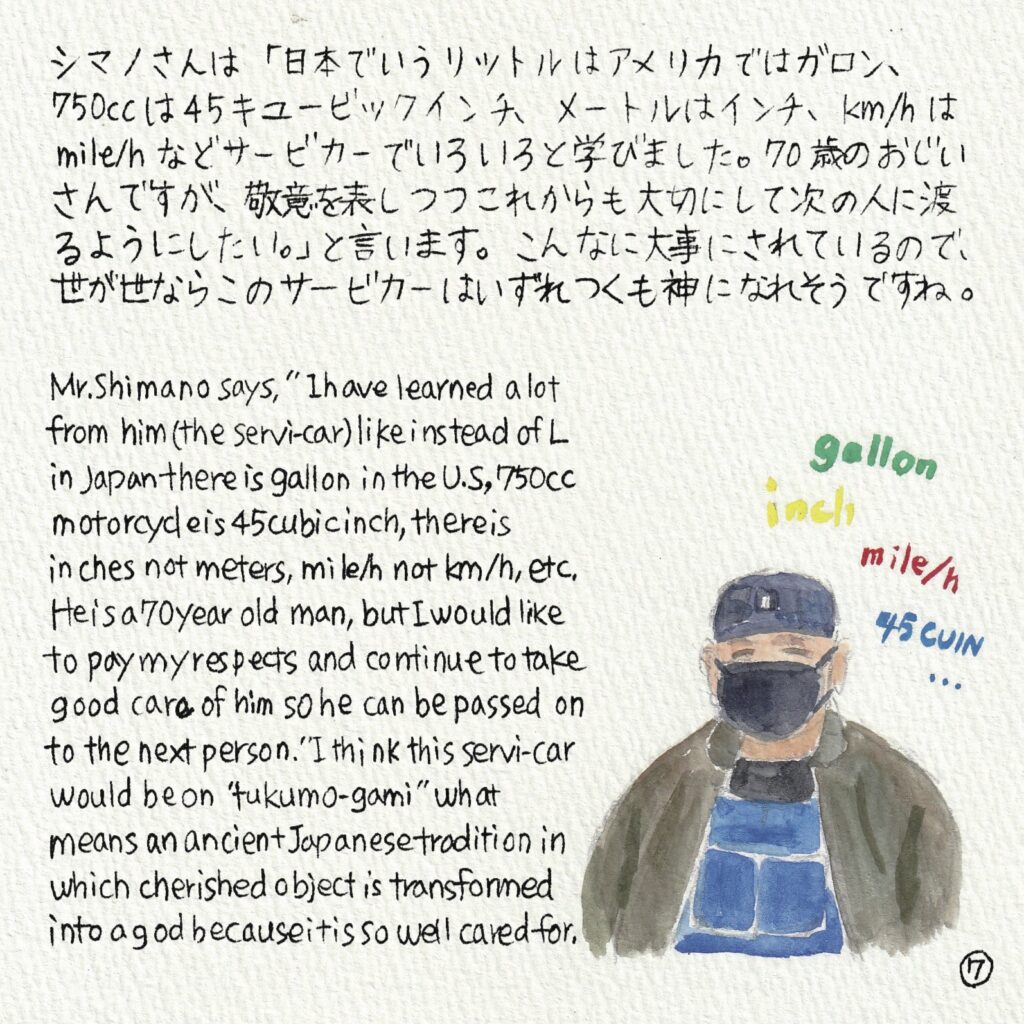 シマノさんは「日本でいうリットルはアメリカではガロン、
750ccは45キュービックインチ、メートルはインチ、km/hは
mile/hなどサービカーでいろいろと学びました。70歳のおじい
さんですが、敬意を表しつつこれからも大切にして次の人に渡
るようにしたい。」と言います。こんなに大事にされているので、
世が世ならこのサービカーはいずれつくも神になれそうですね。
Mr.Shimano says, "I have learned a lot
from him (the servi-car) like instead of L
in Japan there is gallon in the U.S, 750cc
motorcycle is 45 cubic inch, there is
inches not meters, mile/h not km/h, etc.
He is a 70 year old man, but I would like
to pay my respects and continue to take
good care of him so he can be passed on
to the next person." I think this servi-car
would be on "tukumo-gami" what
means an ancient Japanese tradition in
which cherished object is transformed
into a god because it is so well cared-for.
gallon
inch
mile/h
45 CUIN
...
7